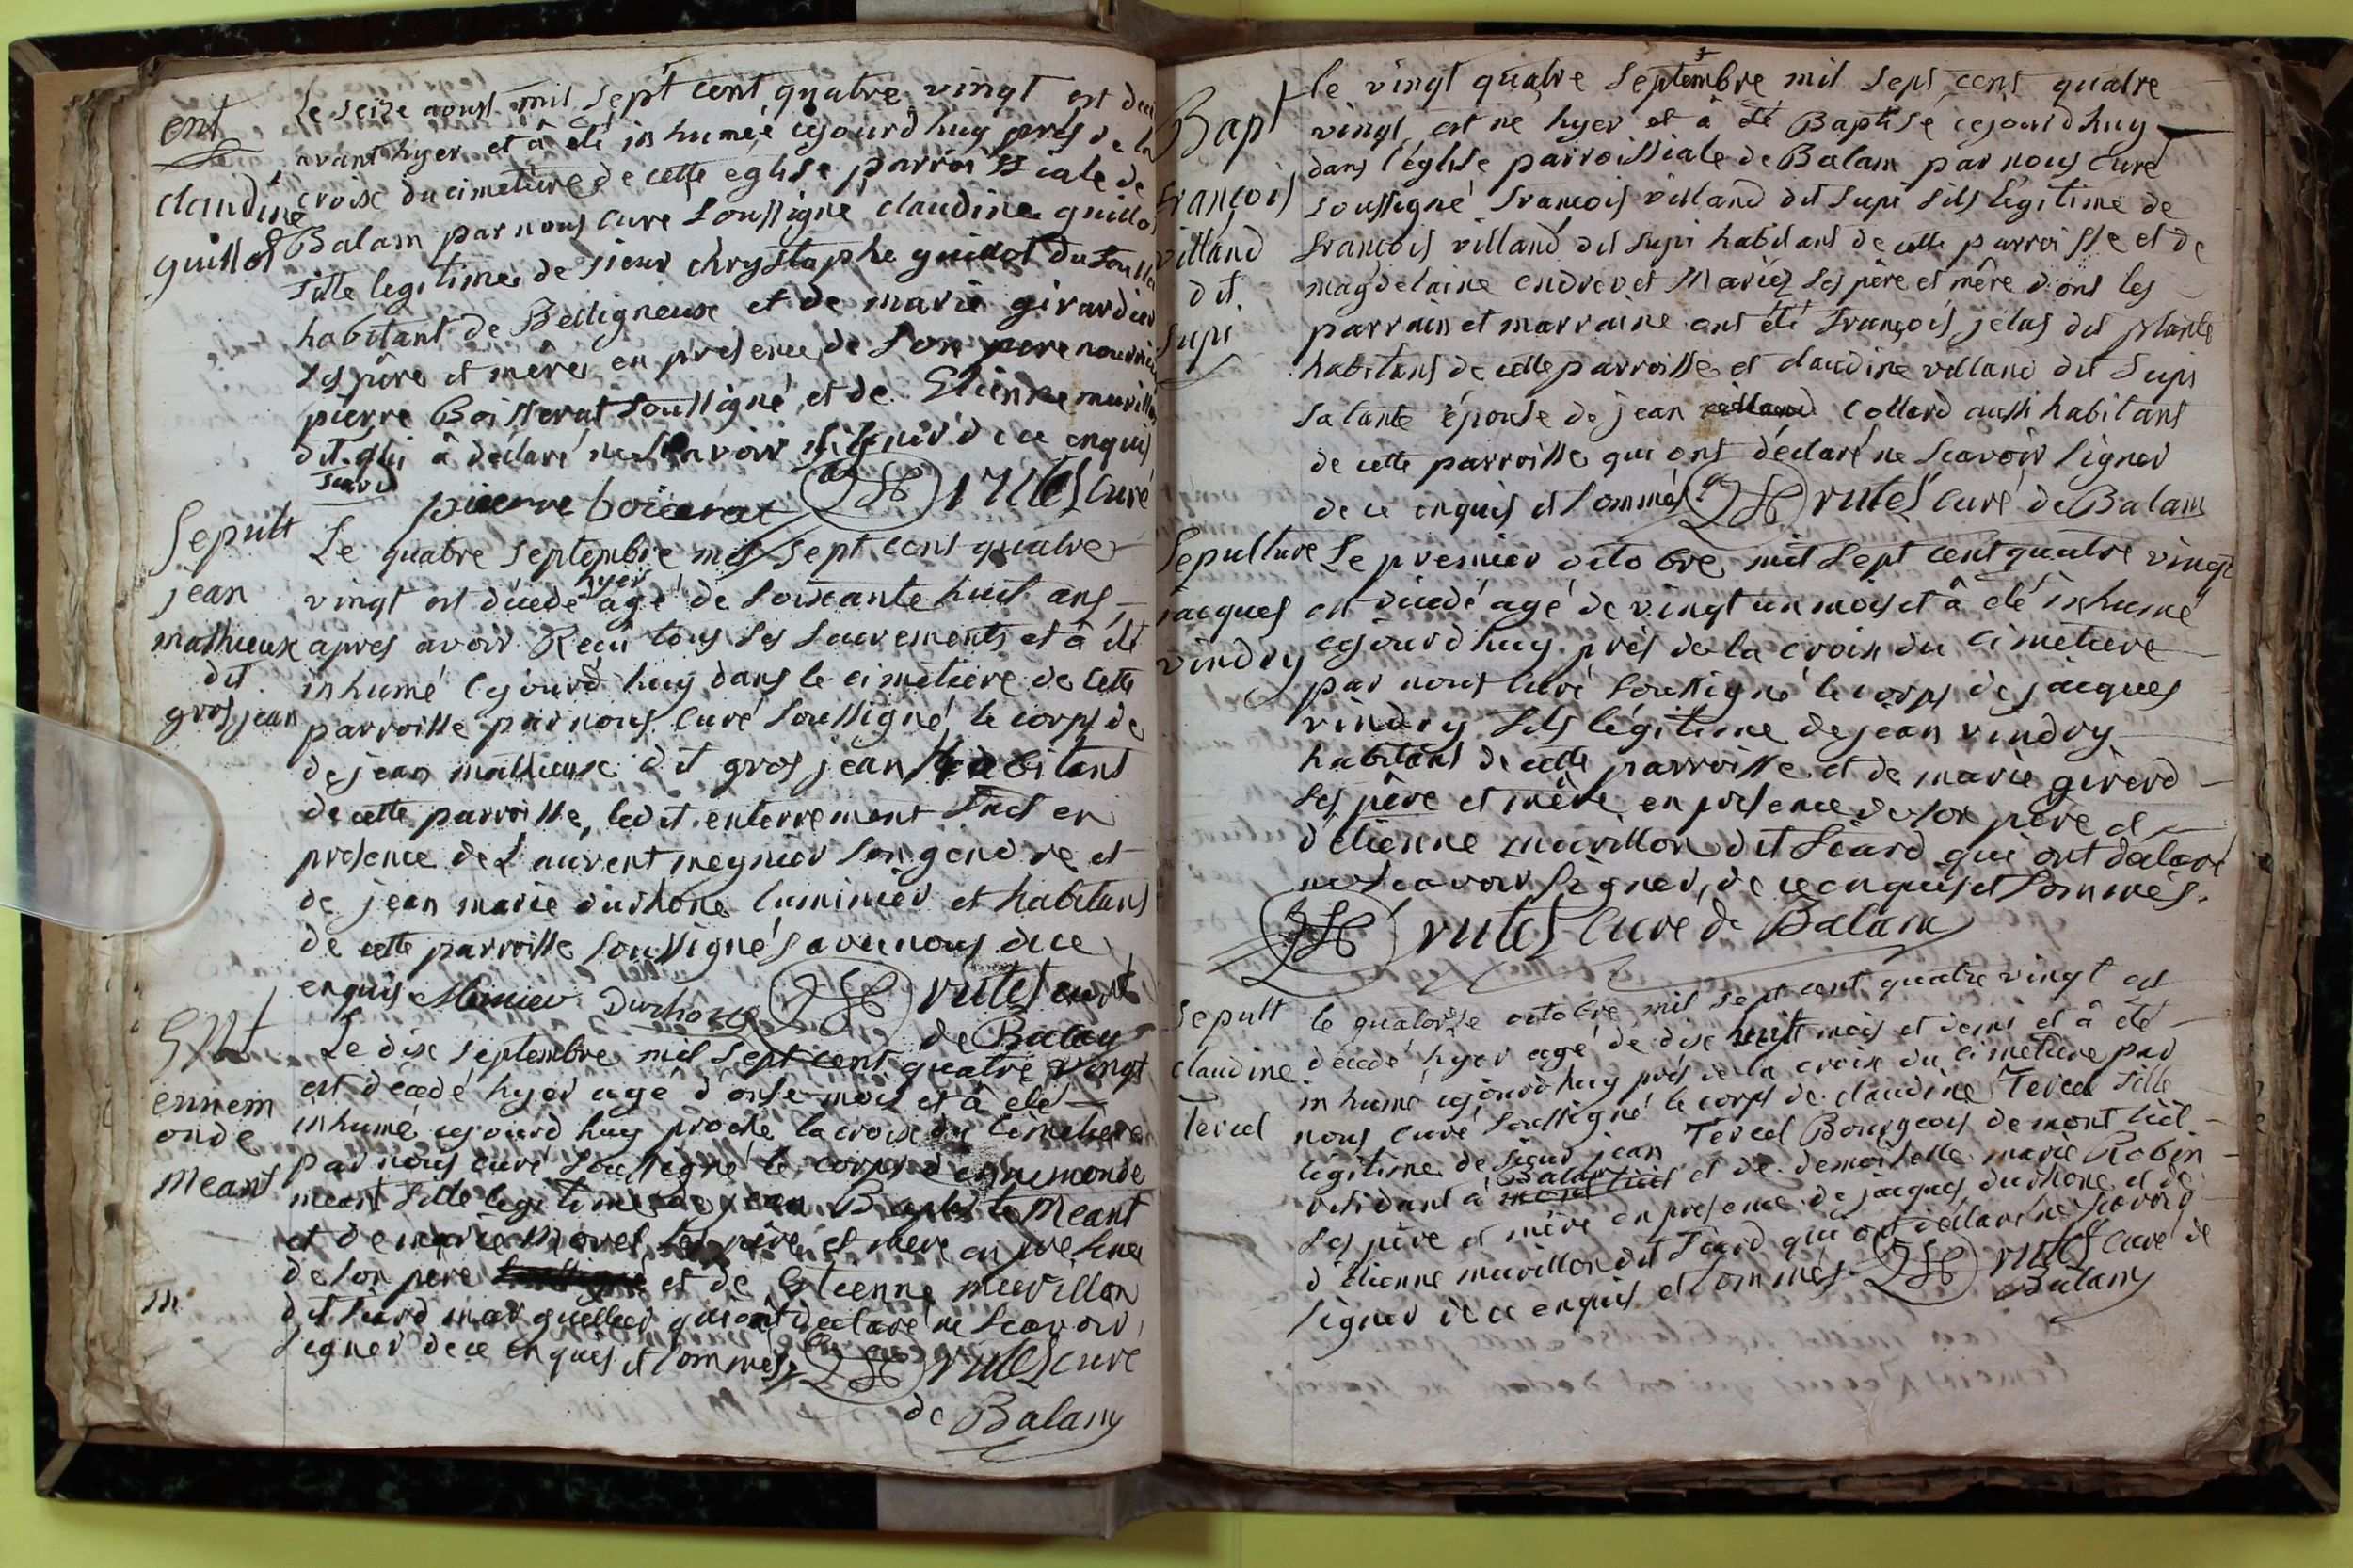 ent
claudine
guillot
Le seize aoust mil sept cent quatre vingt est deced
avant hyer et à été inhumée cejourd'huy près de la
croix du cimetiere de cette eglise parroissiale de
Balam par nous curé soussigné claudine guillot
fille legitime de sieur chrystophe guillot du
habitant de Belligneux et de marie girardier
ses père et mère en présence de son pere nourricier
pierre Boisserat soussigné et de Etienne muvillon
dit siard qui à déclaré ne scavoir signer de ce enquis
pieerre boicerat rutes curé
Sepult
jean
mathieux
dit
gros jean
Le quatre septembre mil sept cent quatre
vingt est décédé hyer agé de soixante huit ans
apres avoir Reçu tous ses sacrements et à été
inhumé cejourd huy dans le cimetiere de cette
parroisse par nous curé soussigné le corps de
de jean mathieux dit gros jean habitant
de cette parroisse, ledit enterrement fait en
présence de Laurent meynier son gendre et
de jean marie durhône luminier et habitans
de cette parroisse soussignés avec nous de ce
enquis Meinier Durhone rutes curé
de Balam
Ent
ennem
onde
Meant
Le dix septembre mil sept cent quatre vingt
est décédé hyer agé d'onse mois et à été
inhumé cejourd huy proche la croix du cimetiere
par nous curé soussigné le corps d'ennemonde
meant fille legitime de jean Baptiste Meant
et de marie Morel ses père et mère en présence
de son père soussigné et de Etienne muvillon
dit siard marguellier qui ont déclaré ne scavoir
signer de ce enquis et sommés rutes curé
de Balam
Bapt
françois
villand
dit
supi
le vingt quatre septembre mil sept cent quatre
vingt est né hyer et à été Baptisé cejourdhuy
dans l'église parroissiale de Balam par nous curé
soussigné françois villand dit supi fils légitime de
françois villand dit supi habitant de cette parroisse et de
magdelaine endrevet Mariez ses père et mère dont les
parrain et marraine ont été françois jetas dit plante
habitans de cette parroisse et claudine villand dit supi
sa tante épouse de jean villand collard aussi habitans
de cette parroisse qui ont déclaré ne scavoir signer
de ce enquis et sommés rutes curé de Balam
Sepulture
jacques
vindry
Le premier octobre mil sept cent quatre vingt
est décédé agé de vingt un mois et à été inhumé
cejourd huy près de la croix du cimetiere
par nous curé soussigné le corps de jacques
vindry fils légitime de jean vindry
habitant de cette parroisse et de marie girerd
ses père et mère en présence de son père et
d'étienne muvillon dit siard qui ont déclaré
ne scavoir signer, de ce enquis et sommés.
rutes curé de Balam
Sepult
claudine
Tercel
le quatorze octobre mil sept cent quatre vingt est
décédé hyer agé de dix huit mois et demi et à été
inhumé cejourdhuy près de la croix du cimetiere par
nous curé soussigné le corps de claudine Tercel fille
légitime de sieur jean Tercel Bourgeois de mont luel
résidant à mont luel Balam et de demoiselle marie Robin
ses père et mère en présence de jacques durhone et de
d'étienne muvillon dit siard qui ont déclaré ne scavoir
signer de ce enquis et sommés rutes curé de
Balam